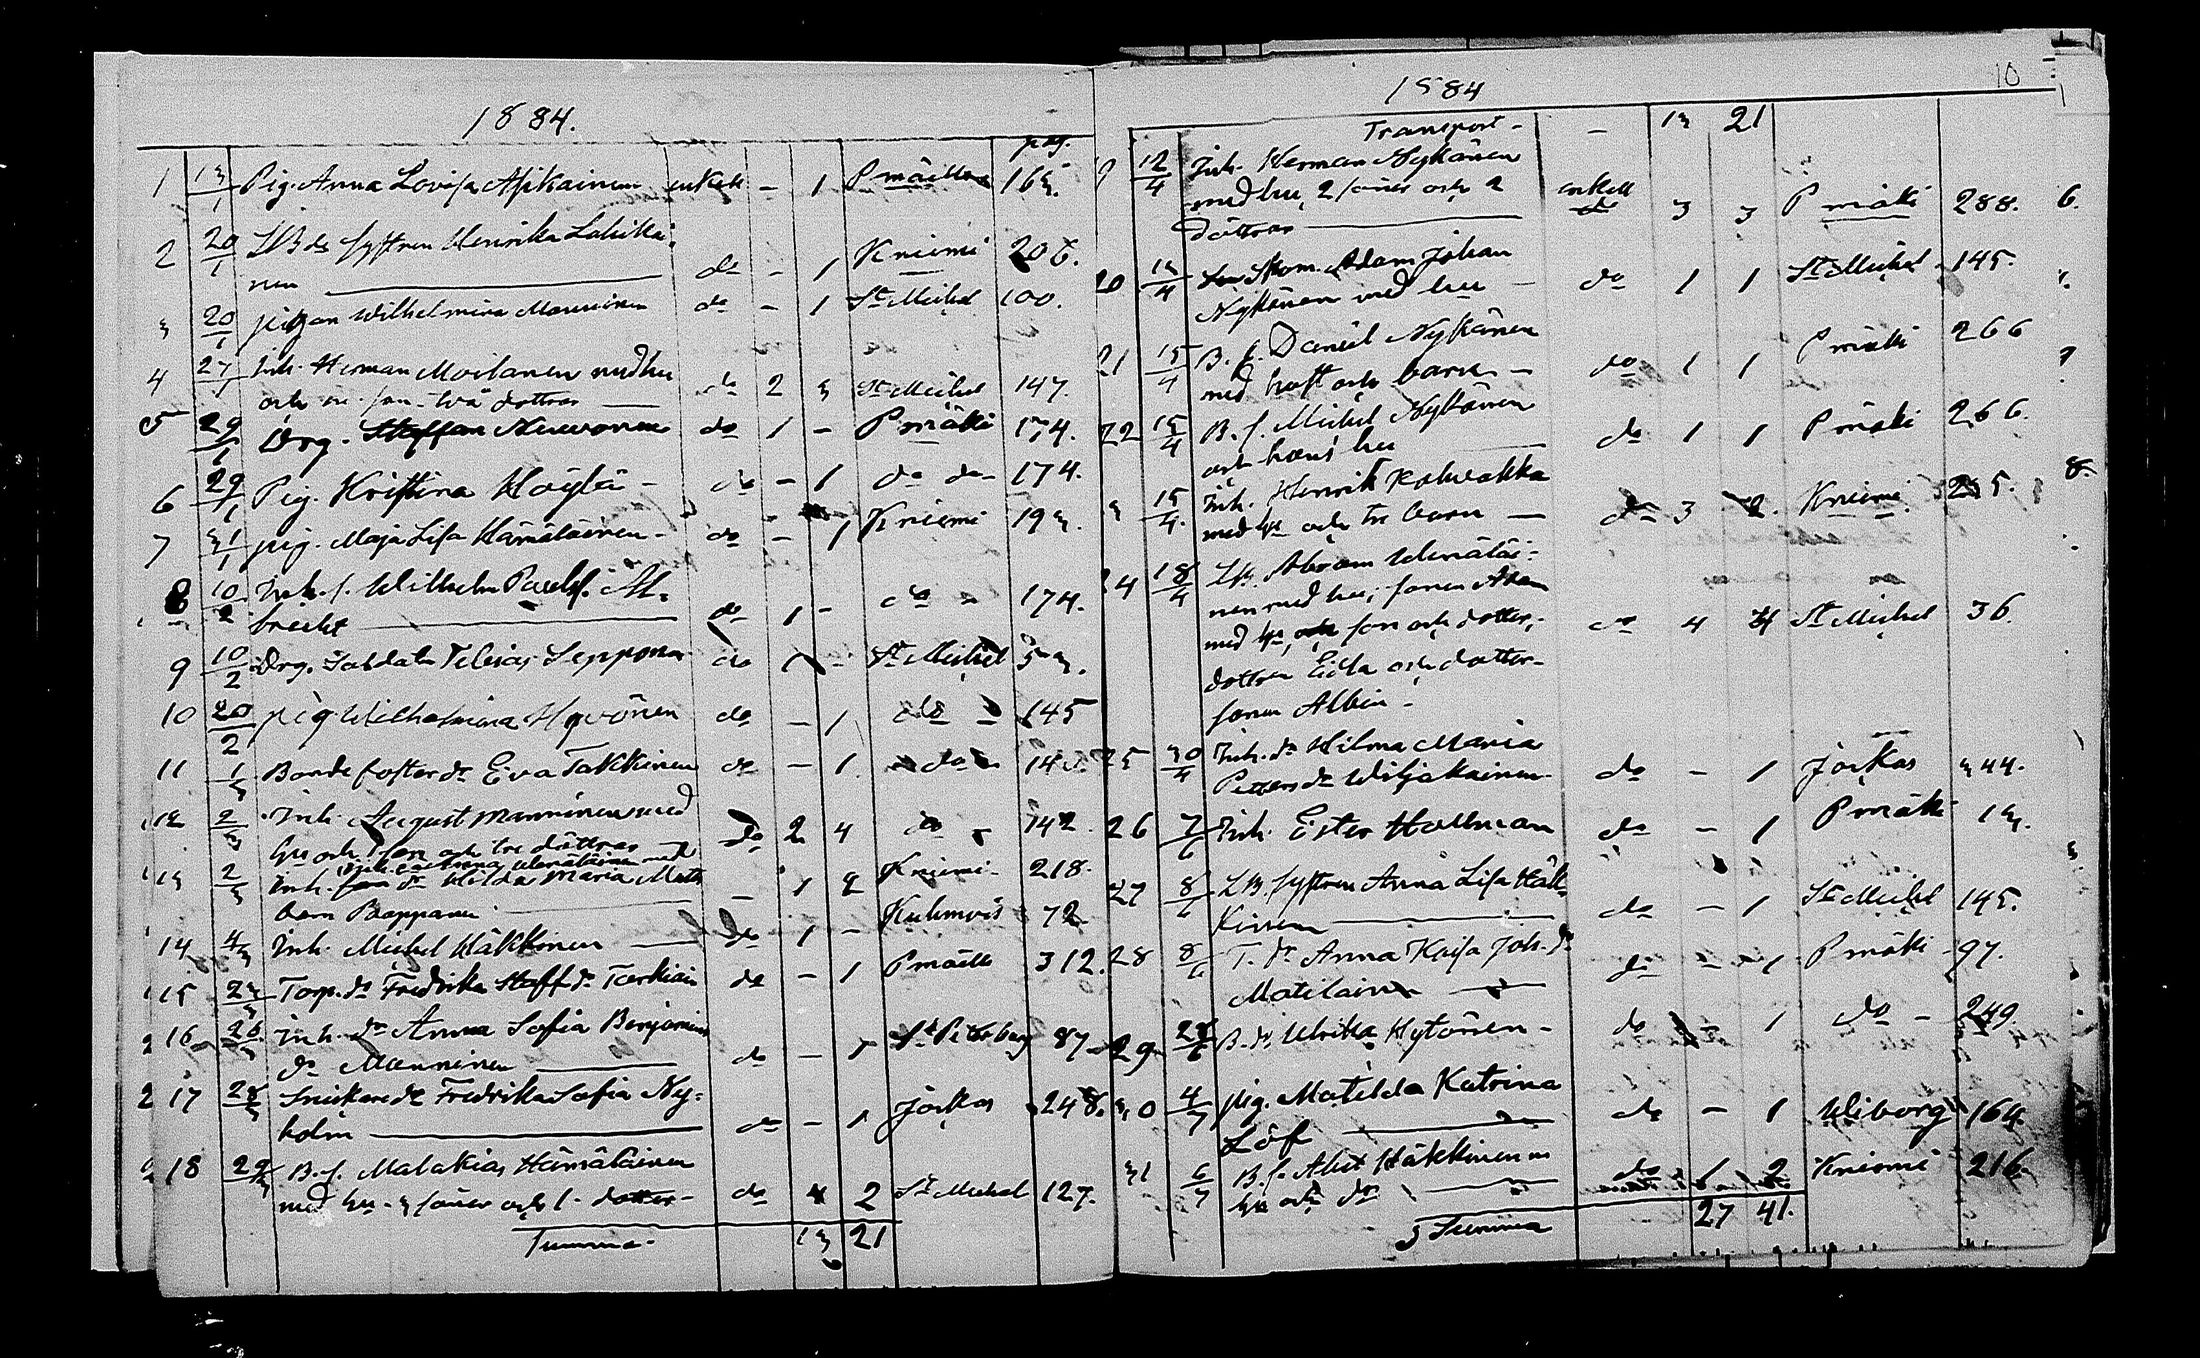 1884.
pag.
1 13/1 Pig. Anna Lovisa Asikainen enkelt - 1 Pmäki 163.
2 20/1 LB ds systren Henrika Lahikai-
nen do - 1 Kniemi 206.
3 20/1 pigan Wilhelmina Manninen do - 1 St Michel 100.
4 27/1 Inh. Herman Moilanen med hu
och en son två döttrar do 2 3 St Michel 147.
5 29/1 Drg. Staffan Nuwonen do 1 - Pmäki 174.
6 29/1 Pig. Kristina Höylä - do - 1 do do 174.
7 31/1 pig. Maja Lisa Hämäläinen - do - 1 Kniemi 193.
8 10/2 Inh. s. Wilhelm Paulss. Al-
brecht do 1 - do 174.
9 10/2 Drg. Soldats Seppone do 1 - St Michel 53.
10 20/2 pig. Wilhelmina Hyvönen do - 1 do - 145
11 1/3 Bondefosterdr Eva Takkinen do - 1 do 14
12 2/3 Inh. August Manninen med
hu och 1 son och tre döttrar do 2 4 do - 142.
13 2/3 Inh. Anna Wenäläinen med
Inh. dr Hilda Maria
barn Pappanen - 1 2 Kniemi - 218.
14 4/3 Inh. Michel Häkkinen do 1 - Kuhmois 72
15 23/3 Torp. dr Fredrika Staff dr Tarkiai do - 1 Pmäki 312.
16 26/3 Inh. dr Anna Sofia Benjamins
dr Manninen do - 1 St Peterburg 87
17 28/3 Snickare dr Fredrika Sofia Ny-
holm do - 1 Jockas 248.
18 29/3 B. s. Malakias Hämäläinen
med hu - 3 söner och 1 - dotter - do 4 2 St Michel 127.
Summa - 13 21
1884
10
Transport - - 13 21
12/4 Inh. Herman Nykänen
med hu, 2 söner och 2
döttrar enkelt 3 3 Pmäki 288.
20 13/4 Skom. Adam Johan
Nykänen med hu - do 1 1 St Michel 145.
21 15/4 B. s. Daniel Nykänen
med hust och barn - do 1 1 Pmäki 266
22 15/4 B. s. Michel Nykänen
och hans hu do 1 1 Pmäki 266.
3 15/4 Inh. Henrik Kolwakka
med hu och tre barn - do 3 2. Kniemi
24 18/4 LB. Abram Wenäläi-
nen med hu, sonen Adam
med hu, son och dotter,
dottern Eida och dotter-
sonen Albin - do 4 4 St Michel 36.
25 30/4 Inh. dr Hilma Maria
Petters dr Wiljakainen do - 1 Jockas 344.
26 7/6 Inh. Ester Hallman do - 1 Pmäki 13.
27 8/6 LB. systren Anna Lisa Häk-
kinen do - 1 St Michel 145.
28 8/6 T. dr Anna Kaisa Joh. dr
Matilainen do - 1 Pmäki 97.
29 28/6 B. dr Ulrika Hytönen - do 1 do - 249
30 4/7 pig. Matilda Katrina
Löf do - 1 Wiborg 164.
31 6/7 B. s. Abel Häkkinen m
hu och dr do 1 2 Kniemi 216.
Summa 27 41.